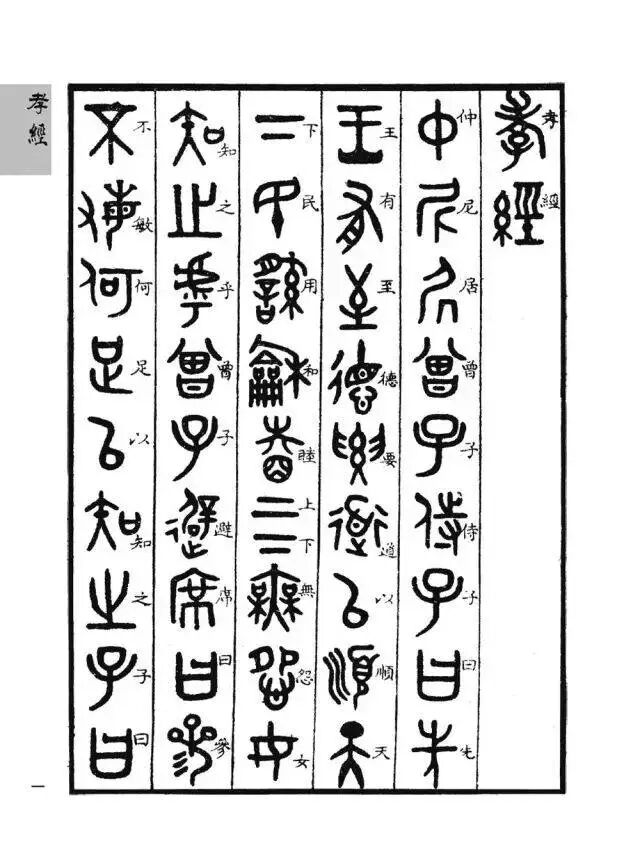 孝經
仲尼居曾子侍子曰先
王有至德要道以順天
下民用和睦上下無怨女
知之乎曾子避席曰參
不敏何足以知之子曰
孝經
一